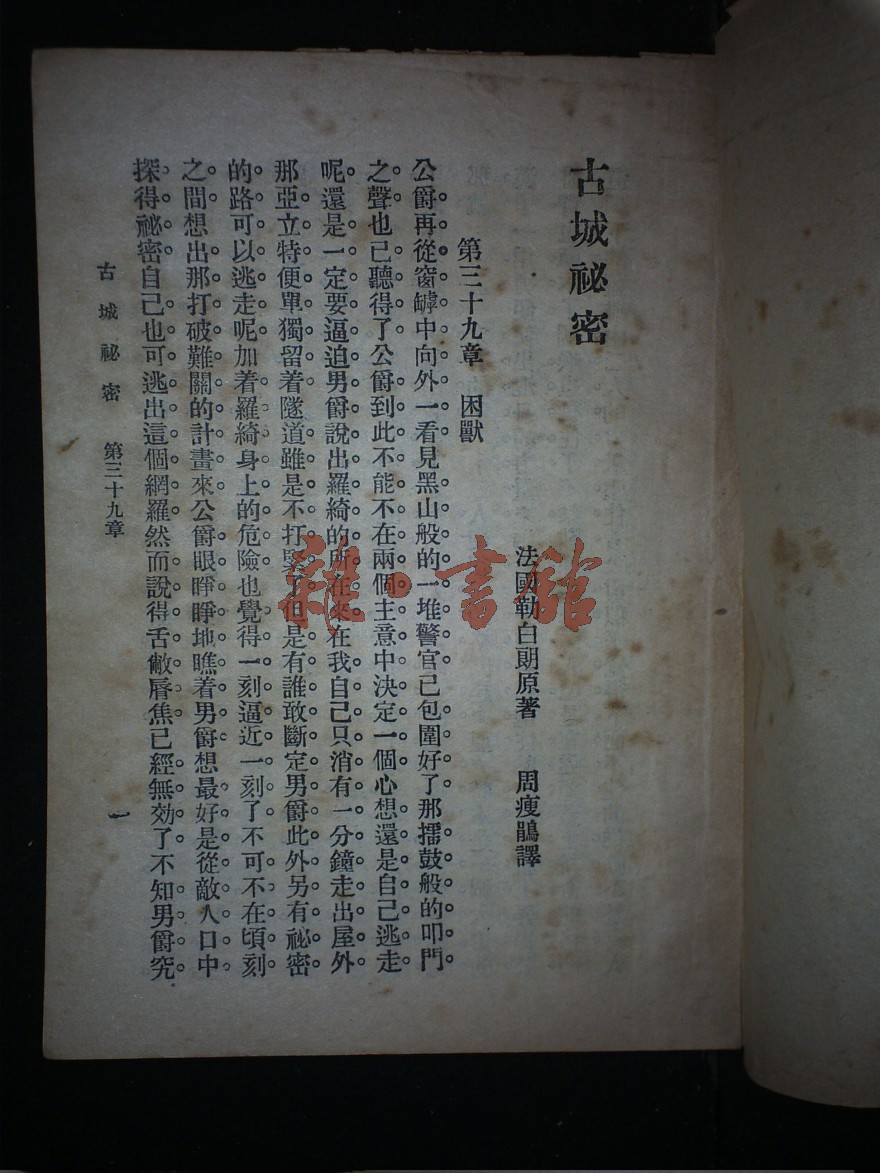 古城祕密
法國勒白朗原著　周瘦鵑譯
第三十九章　困獸
公爵再從窗罅中向外一看見黑山般的一堆警官已包圍好了那擂鼓般的叩門
之聲也已聽得了公爵到此不能不在兩個主意中決定一個心想還是自己逃走
呢還是一定要逼迫男爵說出羅綺的所在來在我自己只消有一分鐘走出屋外
那亞立特便單獨留着隧道雖是不打緊了但是有誰敢斷定男爵此外另有祕密
的路可以逃走呢加着羅綺身上的危險也覺得一刻逼近一刻了不可不在頃刻
之間想出那打破難關的計畫來公爵眼睜睜地瞧着男爵想最好是從敵人口中
探得祕密自己也可逃出這個網羅然而說得舌敝脣焦已經無効了不知男爵究
古城祕密　第三十九章　一
雜·書館